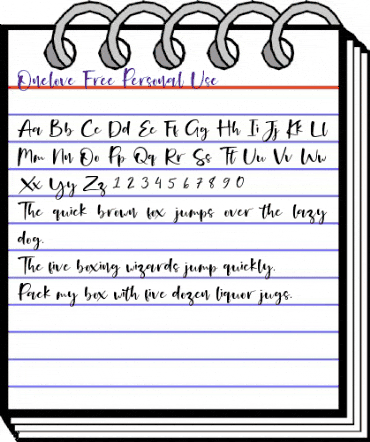 Onelove Free Personal Use
Aa Bb Cc Dd Ee Ff Gg Hh Ii Jj Kk Ll
Mm Nn Oo Pp Qq Rr Ss Tt Uu Vv Ww
Xx Yy Zz 1 2 3 4 5 6 7 8 9 0
The quick brown fox jumps over the lazy
dog.
The five boxing wizards jump quickly.
Pack my box with five dozen liquor jugs.